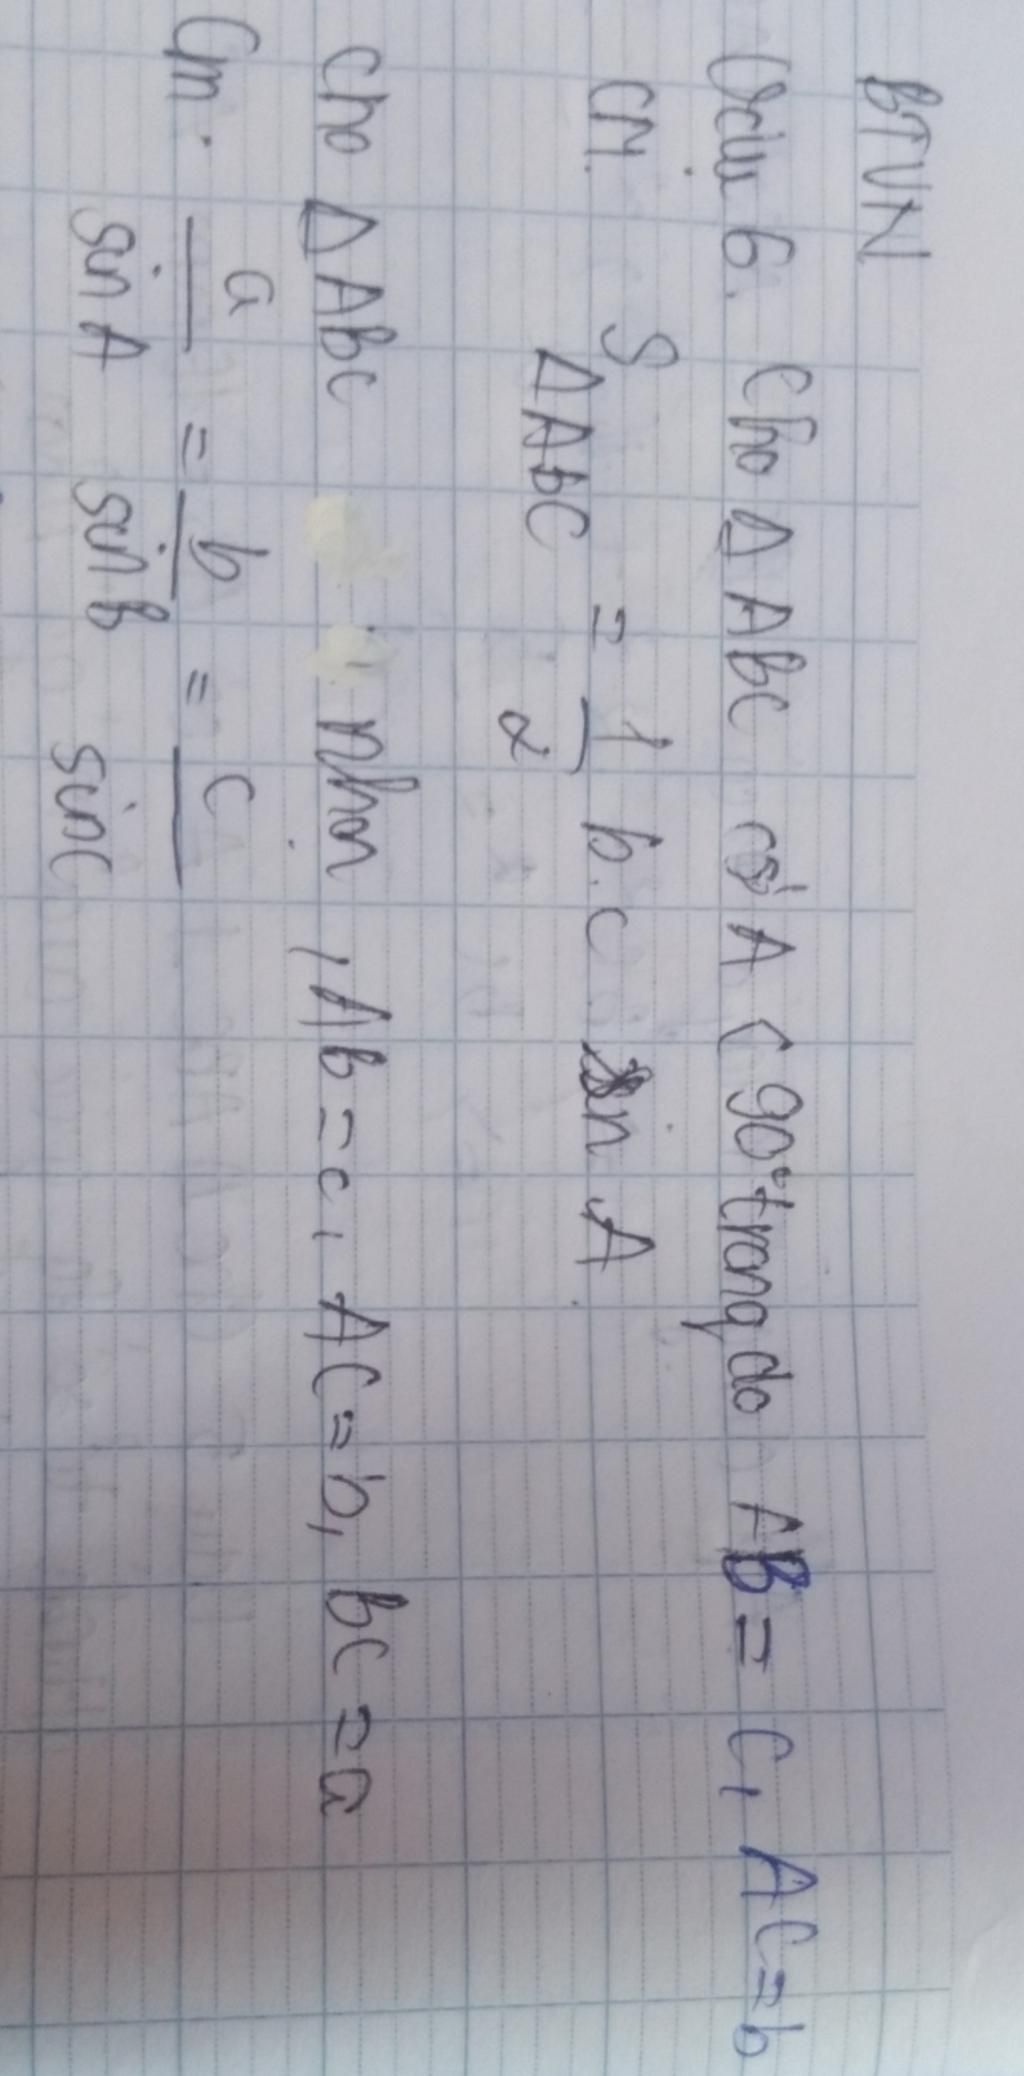 BTVN
Bài 6. Cho Δ ABC có A < 90° trong do AB = c, AC = b
CM. S ΔABC = 1/2 b.c sin A
Cho Δ ABC nhọn, Ab = c, AC = b, bC = a
Cm. a/sin A = b/sin B = c/sin C